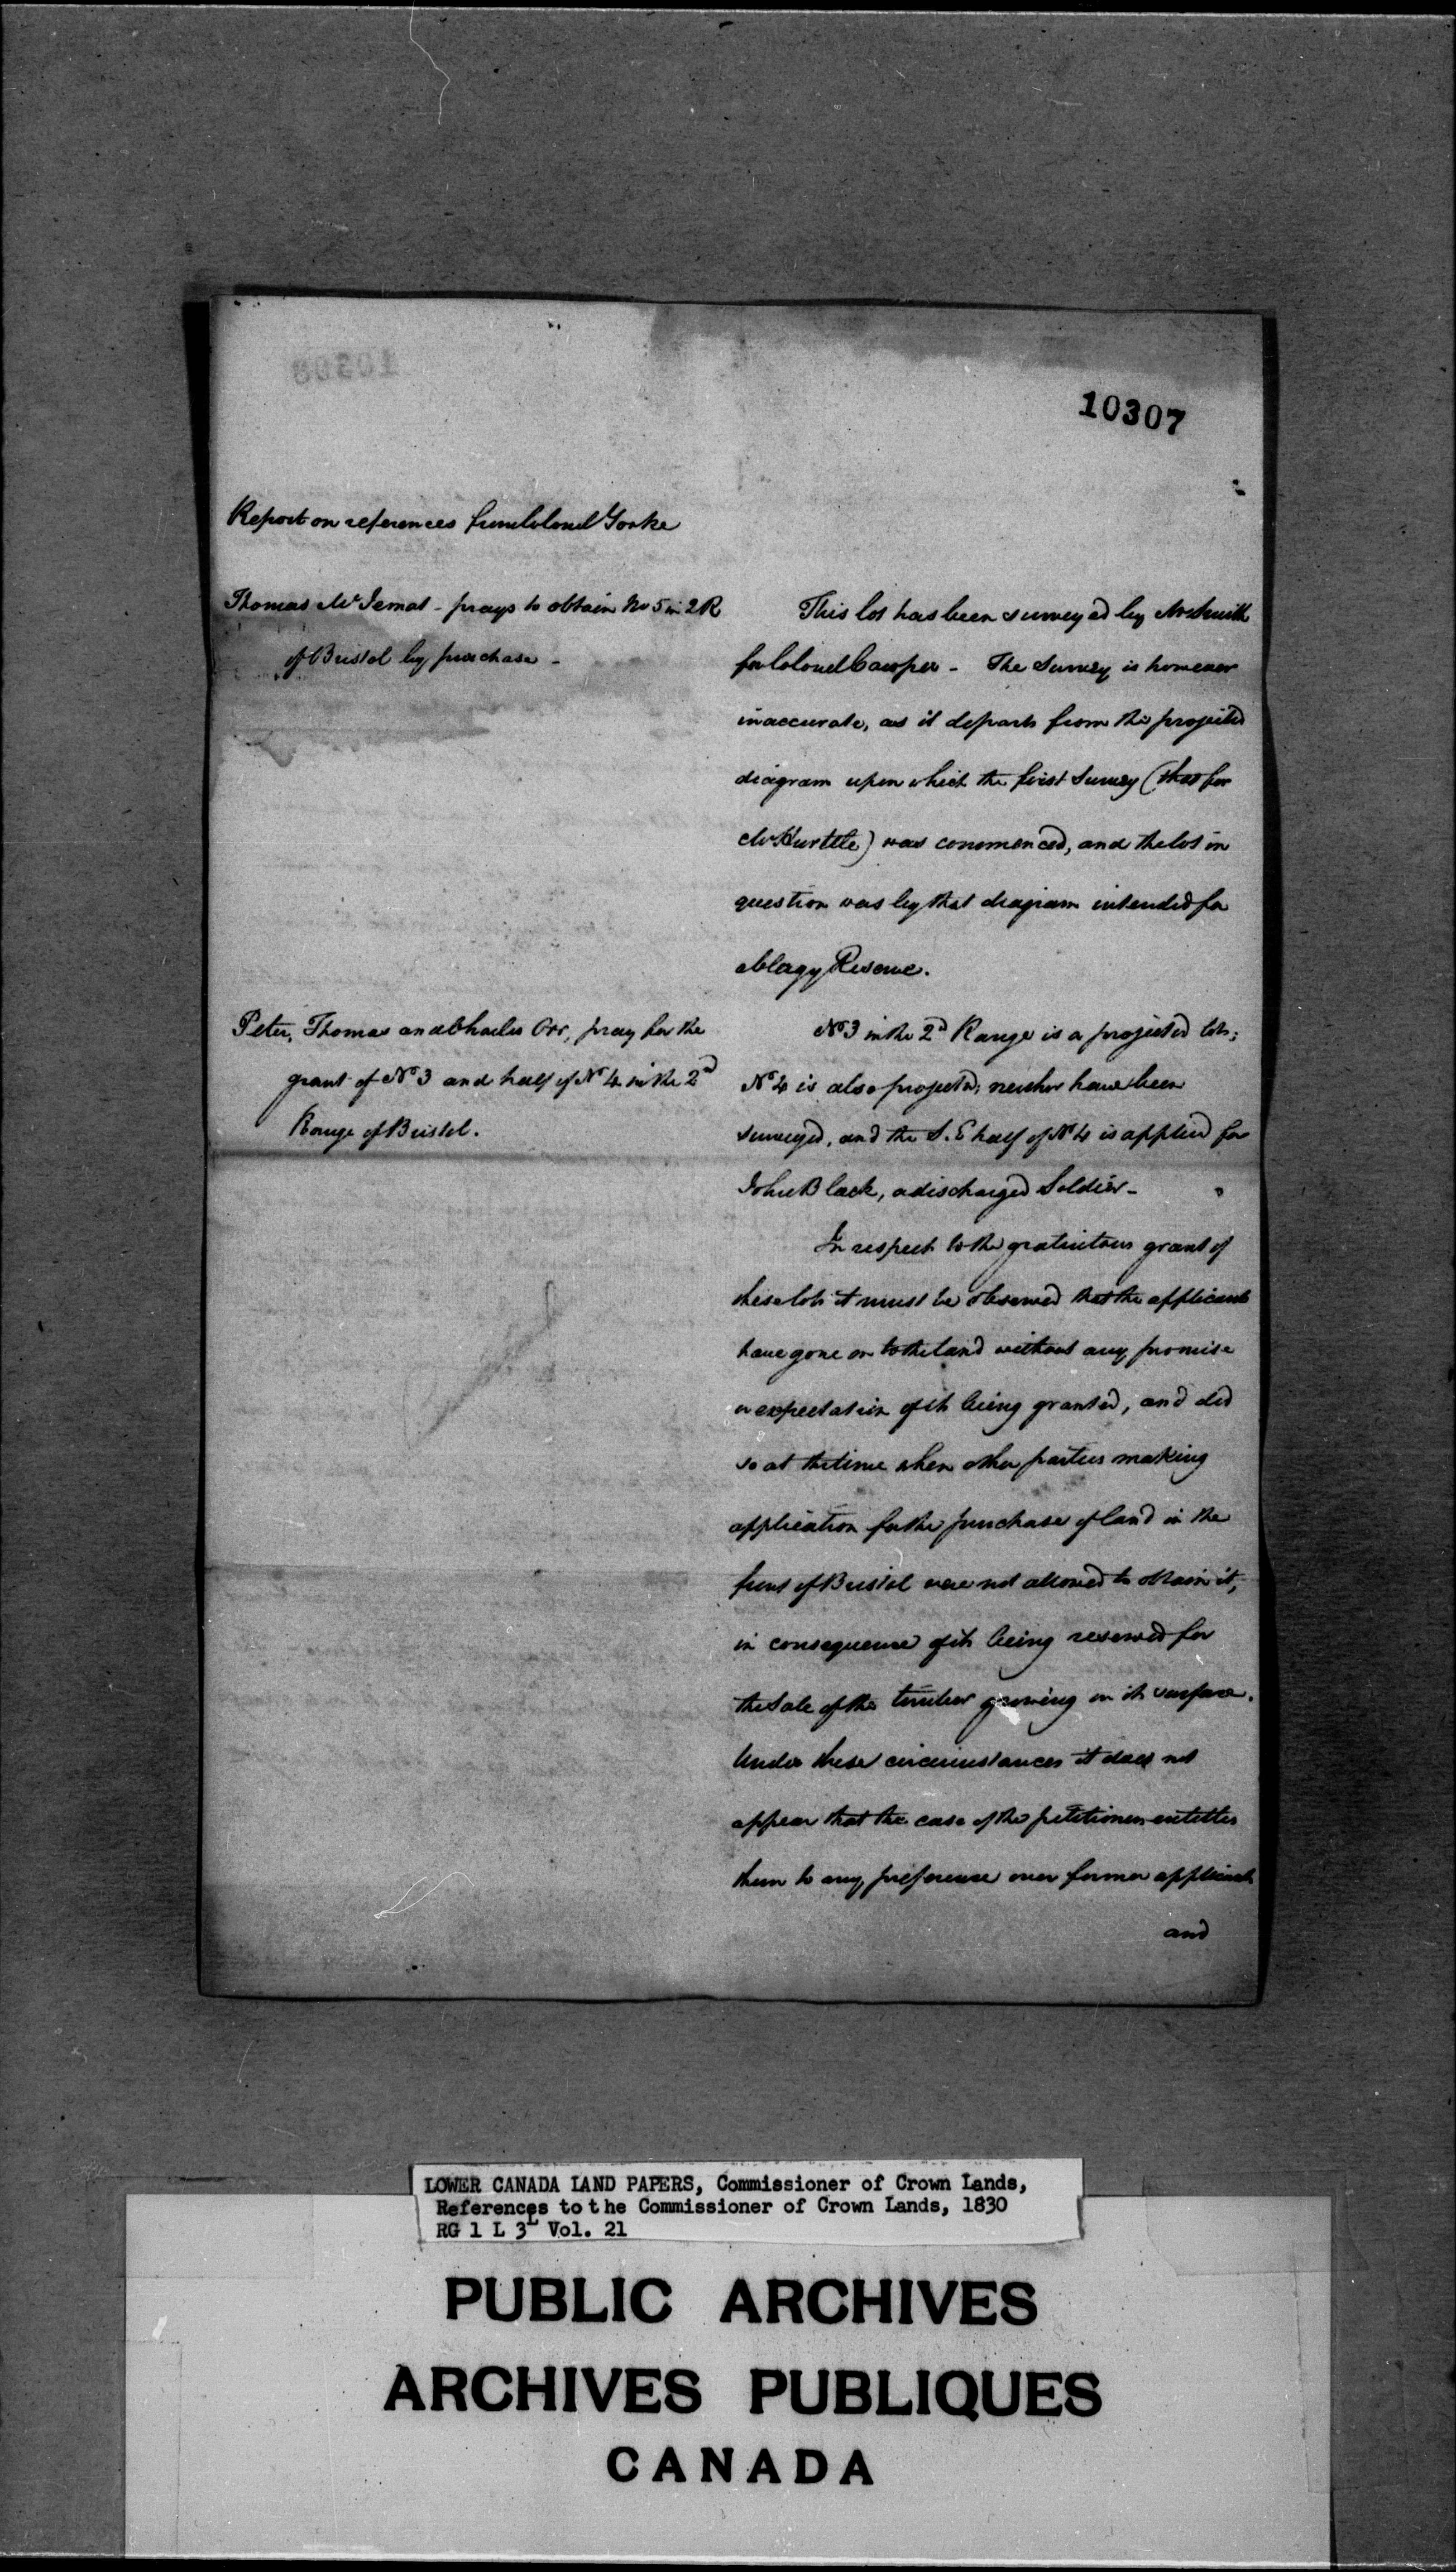 10307
Report on references from Colonel Yorke
Thomas Mc - prays to obtain No 5 in 2 R
of Bristol by purchase -
This lot has been surveyed by Mr Smith
for Colonel Cowper - The Survey is however
inaccurate, as it departs from the projected
diagram upon which the first Survey (that for
Mr Hurtle) was commenced, and the lot in
question was by that diagram intended for
a Clergy Reserve.
Peter, Thomas and Charles Orr, pray for the
grant of No 3 and half of No 4 in the 2nd
Range of Bristol.
No 3 in the 2d Range is a projected lot;
No 4 is also projected; neither have been
surveyed, and the S. E half of No 4 is applied for
John Black, a discharged Soldier -
In respect to the gratuitous grant of
these lots it must be observed that the applicants
have gone on to the land without any promise
or expectation of its being granted, and did
so at the time when other parties making
application for the purchase of land in the
front of Bristol were not allowed to obtain it,
in consequence of its being reserved for
the Sale of the timber growing on its surface.
Under these circumstances it does not
appear that the case of the petitioners entitles
them to any preference over former applicants
and
LOWER CANADA LAND PAPERS, Commissioner of Crown Lands,
References to the Commissioner of Crown Lands, 1830
RG 1 L 3L Vol. 21
PUBLIC ARCHIVES
ARCHIVES PUBLIQUES
CANADA